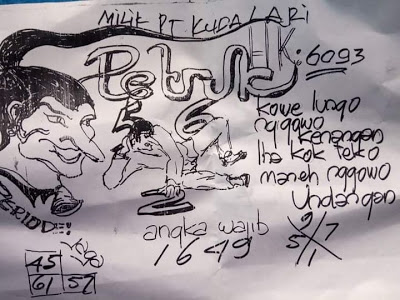 MILIK PT KUDA LARI
HK: 6093
Petruk
5 6
kowe lungo
nggowo
kenangan
lha kok teko
maneh nggowo
undangan
2
PERIODE!
angka wajib
1649
9 7
5 1
45
61 57